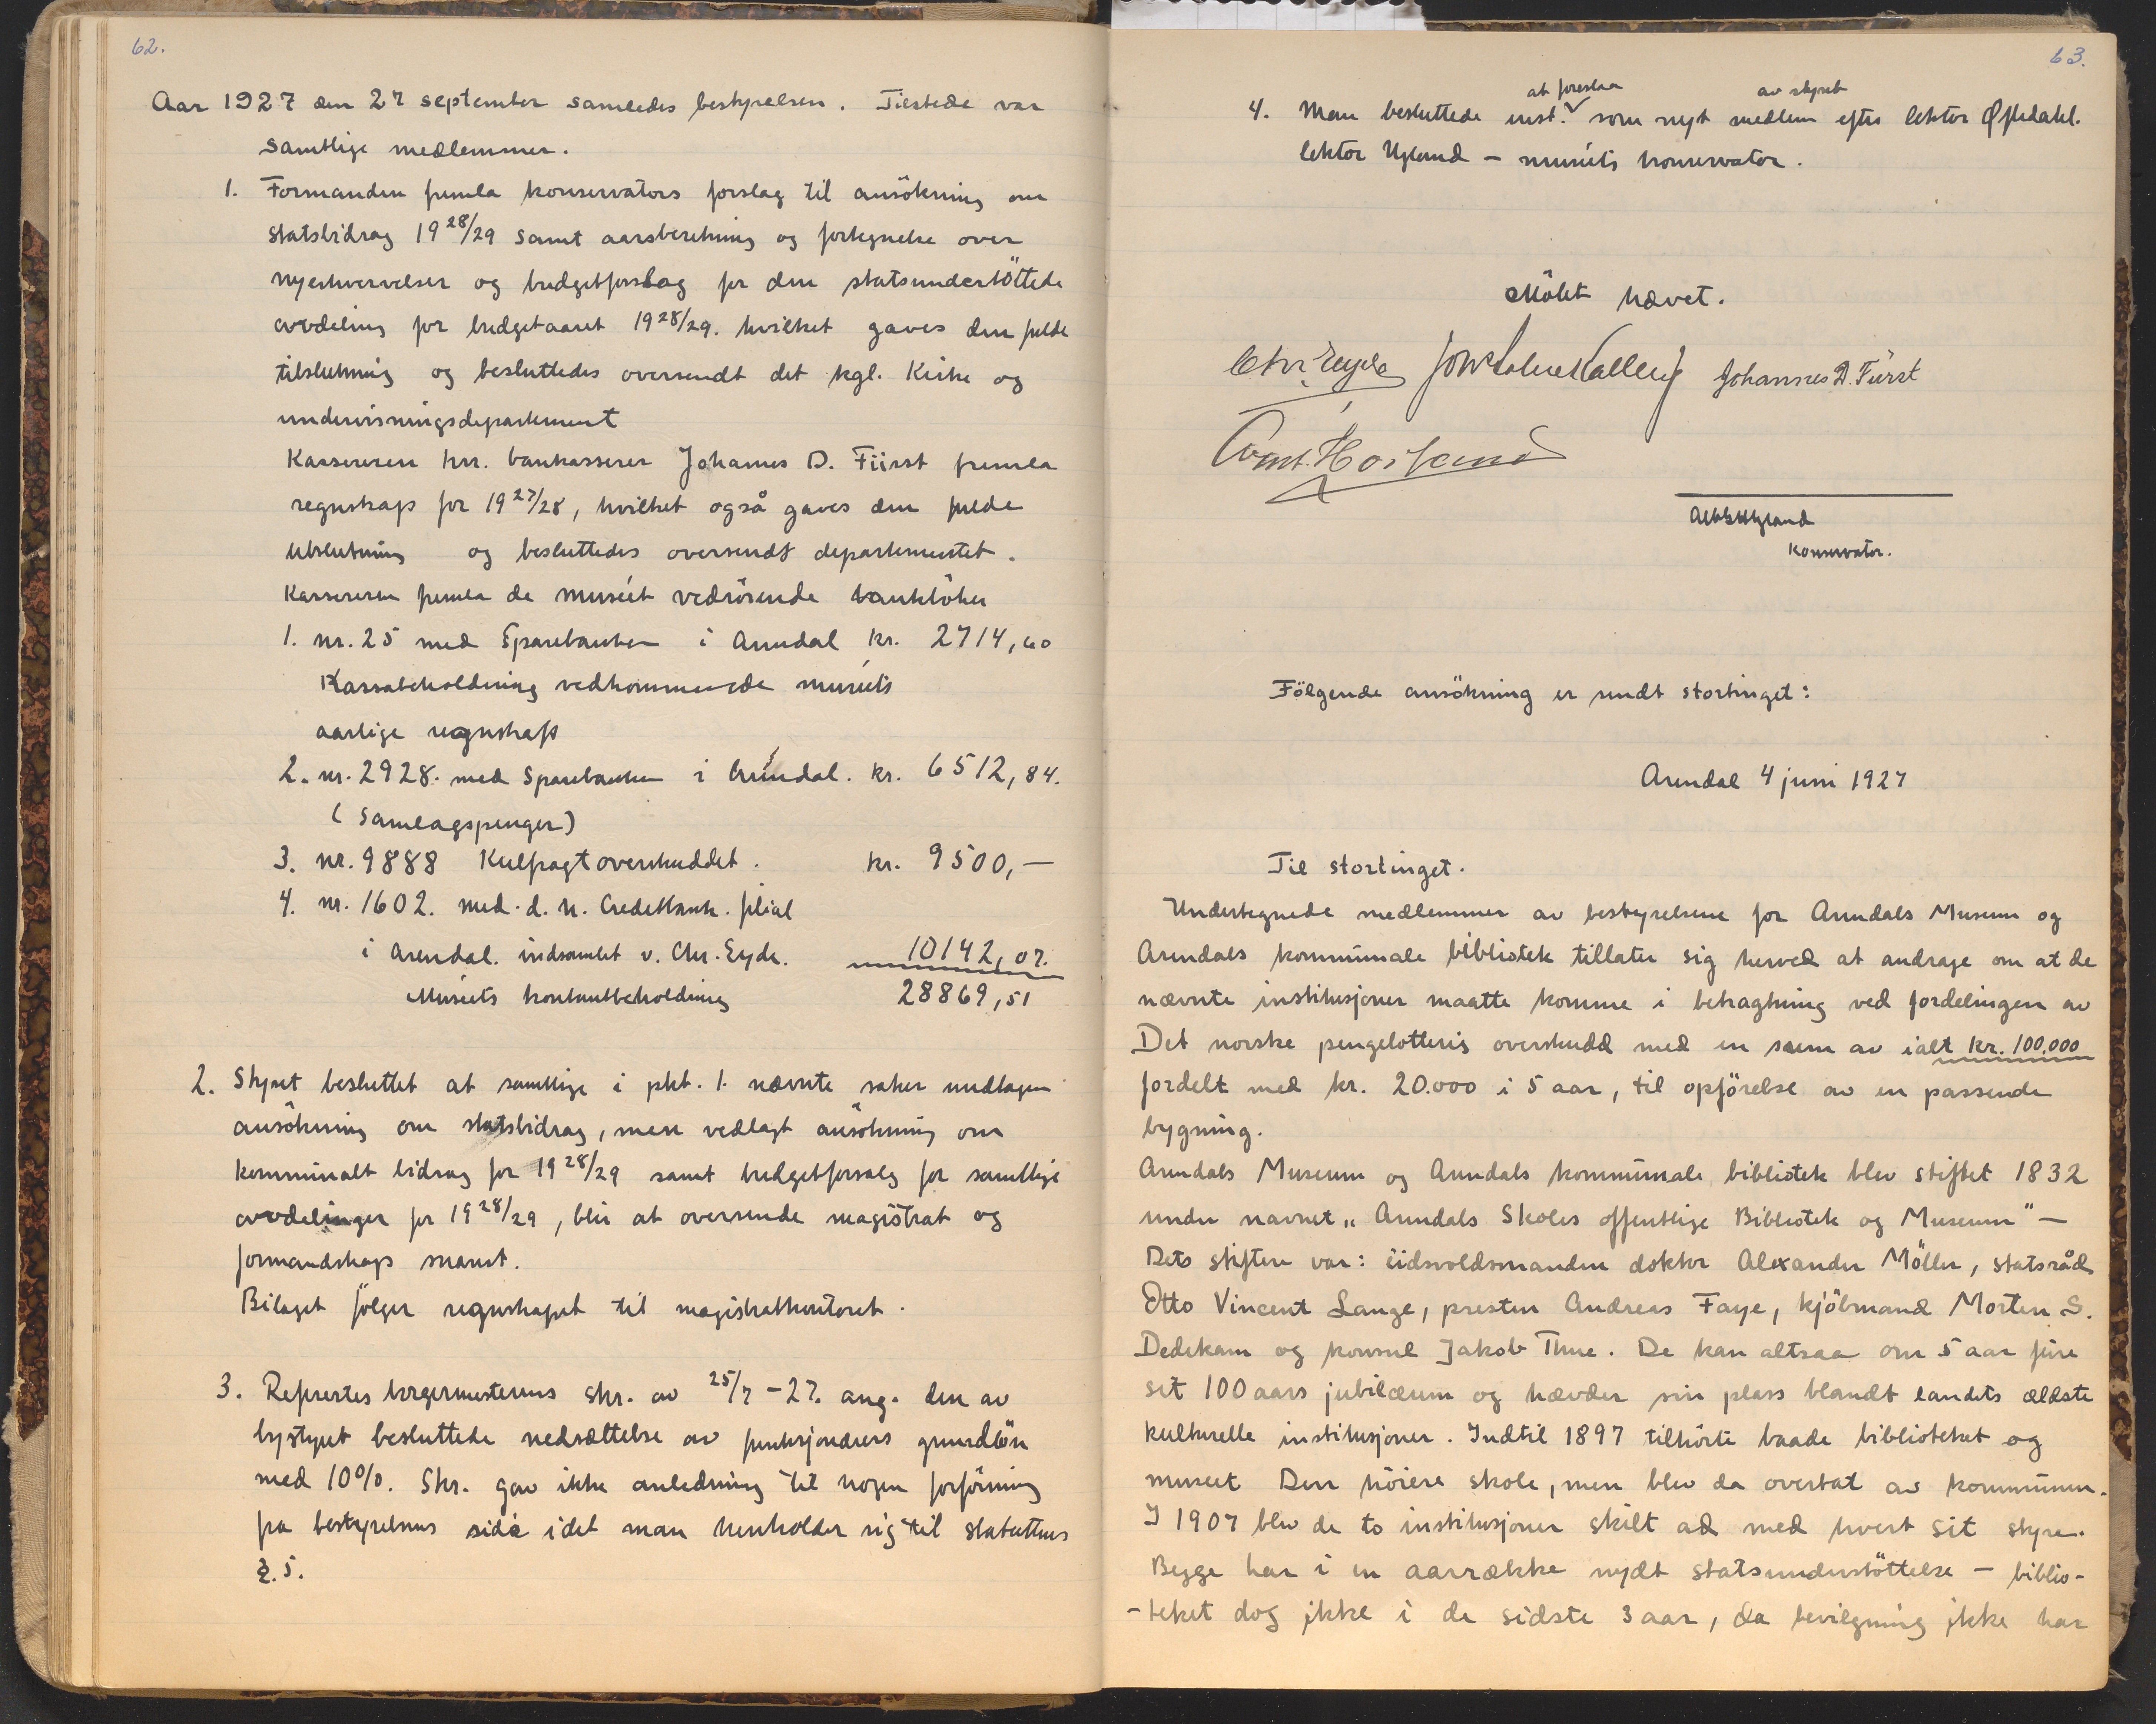 62.
Aar 1927 den 27 september samledes bestyrelsen. Tilstede var
samtlige medlemmer.
1. Formanden fremla konservators forslag til ansökning om
statsbidrag 19 28/29 samt aarsberetning og fortegnelse over
nyerhvervelser og budgetforslag for den statsunderstöttede
avdeling for budgetaaret 19 28/29. hvilket gaves den fulde
tilslutning og besluttedes oversendt det kgl. Kirke og
undervisningsdepartement
Kassereren hrr. bankasserer Johannes D. Fürst fremla
regnskap for 19 27/28, hvilket også gaves den fulde
tilslutning og besluttedes oversendt departementet.
Kassereren fremla de muséet vedrörende bankböker
1. nr. 25 med Sparebanken i Arendal kr. 2714,60
Kassabeholdning vedkommende muséets
aarlige regnskap
2. nr. 2928. med Sparebanken i Arendal. kr. 6512,84.
(Samlagspenger)
3. nr. 9888 Kulfragtoverskuddet. kr. 9500,—
4. nr. 1602. med. d. n. Creditbank. filial
i Arendal. indsamlet v. Chr. Eyde. 10142,07.
Muséets kontantbeholdning 28869,51
2. Styret besluttet at samtlige i pkt. 1. nævnte saker undtagen
ansökning om statsbidrag, men vedlagt ansökning om
kommunalt bidrag for 19 28/29 samt budgetforsalg for samtlige
avdelinger for 19 28/29, blir at oversende magistrat og
formandskap snarest.
Bilaget fölger regnskapet til magistratkontoret.
3. Refertes borgermesterens skr. av 25/7 -27. ang. den av
bystyret besluttede nedsættelse av funksjonærers grundlön
med 10%. Skr. gav ikke anledning til nogen forföining
fra bestyrelsens side idet man henholder sig til statuttenes
§. 5.
63.
at foreslaa av styret
4. Man besluttede enst. som nyt medlem efter lektor Øfledahl.
lektor Ugland – muséets konservator.
Mötet hævet.
Chr. Eyde Johannes D. Fürst
Konservator.
Fölgende ansökning er sendt stortinget:
Arendal 4 juni 1927
Til stortinget.
Undertegnede medlemmer av bestyrelsene for Arendals Museum og
Arendals kommunale bibliotek tillater sig herved at andrage om at de
nævnte institusjoner maatte komme i betragtning ved fordelingen av
Det norske pengelotteris overskudd med en sum av ialt kr. 100,000
fordelt med kr. 20.000 i 5 aar, til opförelse av en passende
bygning.
Arendals Museum og Arendals kommunale bibliotek blev stiftet 1832
under navnet „Arendals Skoles offentlige Bibliotek og Museum" —
Dets stiftere var: Eidsvoldsmanden doktor Alexander Möller, statsråd
Otto Vincent Lange, presten Andreas Faye, kjöbmand Morten S.
Dedekam og konsul Jakob Thue. De kan altsaa om 5 aar feire
sit 100 aars jubilæum og hævder sin plass blandt landets ældste
kulturelle institusjoner. Indtil 1897 tilhörte baade biblioteket og
museet Den höiere skole, men blev da overtat av kommunen.
I 1907 blev de to institusjoner skilt ad med hvert sit styre.
Begge har i en aarrække nydt statsunderstöttelse – biblio-
-teket dog ikke i de sidste 3 aar, da bevilgning ikke har